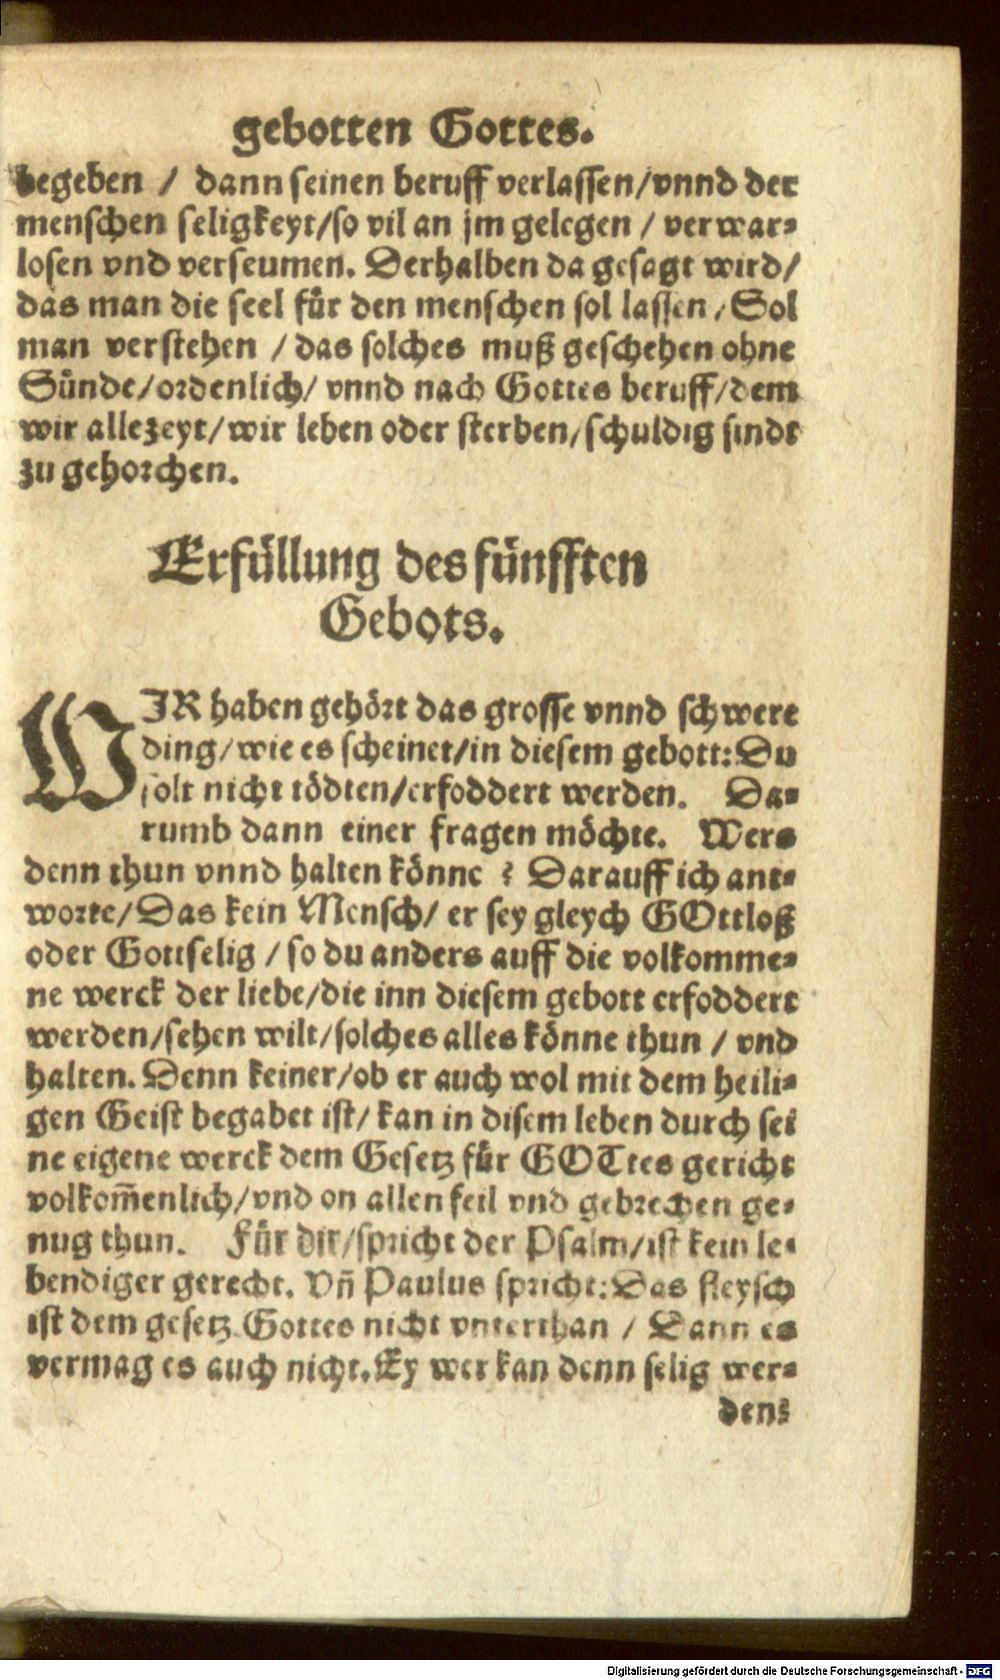 gebotten Gottes.
begeben / dann seinen beruff verlassen/vnnd der
menschen seligkeyt/so vil an jm gelegen / verwar-
losen vnd verseumen. Derhalben da gesagt wird/
das man die seel für den menschen sol lassen/Sol
man verstehen / das solches muß geschehen ohne
Sünde/ordenlich/ vnnd nach Gottes beruff/dem
wir allezeyt/wir leben oder sterben/schuldig sindt
zu gehorchen.
Erfüllung des fünfften
Gebots.
WIR haben gehört das grosse vnnd schwere
ding/wie es scheinet/in diesem gebott: Du
solt nicht tödten/erfoddert werden. Da-
rumb dann einer fragen möchte. Wers
denn thun vnnd halten könne ? Darauff ich ant-
worte/Das kein Mensch/ er sey gleych GOttloß
oder Gottselig / so du anders auff die volkomme-
ne werck der liebe/die inn diesem gebott erfoddert
werden/sehen wilt/solches alles könne thun / vnd
halten. Denn keiner/ob er auch wol mit dem heili-
gen Geist begabet ist/ kan in disem leben durch sei
ne eigene werck dem Gesetz für GOTtes gericht
volkom̃enlich/vnd on allen feil vnd gebrechen ge-
nug thun. Für dir/spricht der Psalm/ist kein le-
bendiger gerecht. Vñ Paulus spricht: Das fleysch
ist dem gesetz Gottes nicht vnterthan / Dann es
vermag es auch nicht. Ey wer kan denn selig wer-
den?
Digitalisierung gefördert durch die Deutsche Forschungsgemeinschaft - DFG